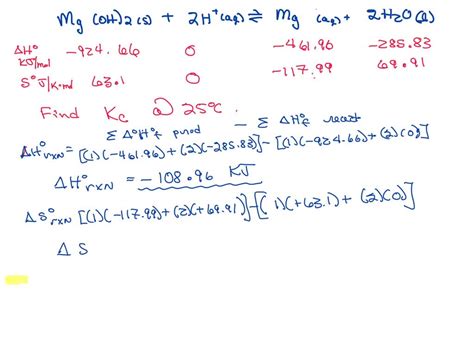 Mg(OH)2(s) + 2H+(aq) ⇌ Mg (aq) + 2H2O(l)
ΔH° kJ/mol -924.66 0 -461.96 -285.83
S° J/K·mol 63.1 0 -117.99 69.91
Find Kc @ 25°C.
Σ ΔH°f prod - Σ ΔH°f react
ΔH°rxn = [(1)(-461.96)+(2)(-285.83)]-[(1)(-924.66)+(2)(0)]
ΔH°rxn = -108.96 KJ
ΔS°rxn [(1)(-117.99)+(2)(+69.91)]-[(1)(+63.1)+(2)(0)]
ΔS